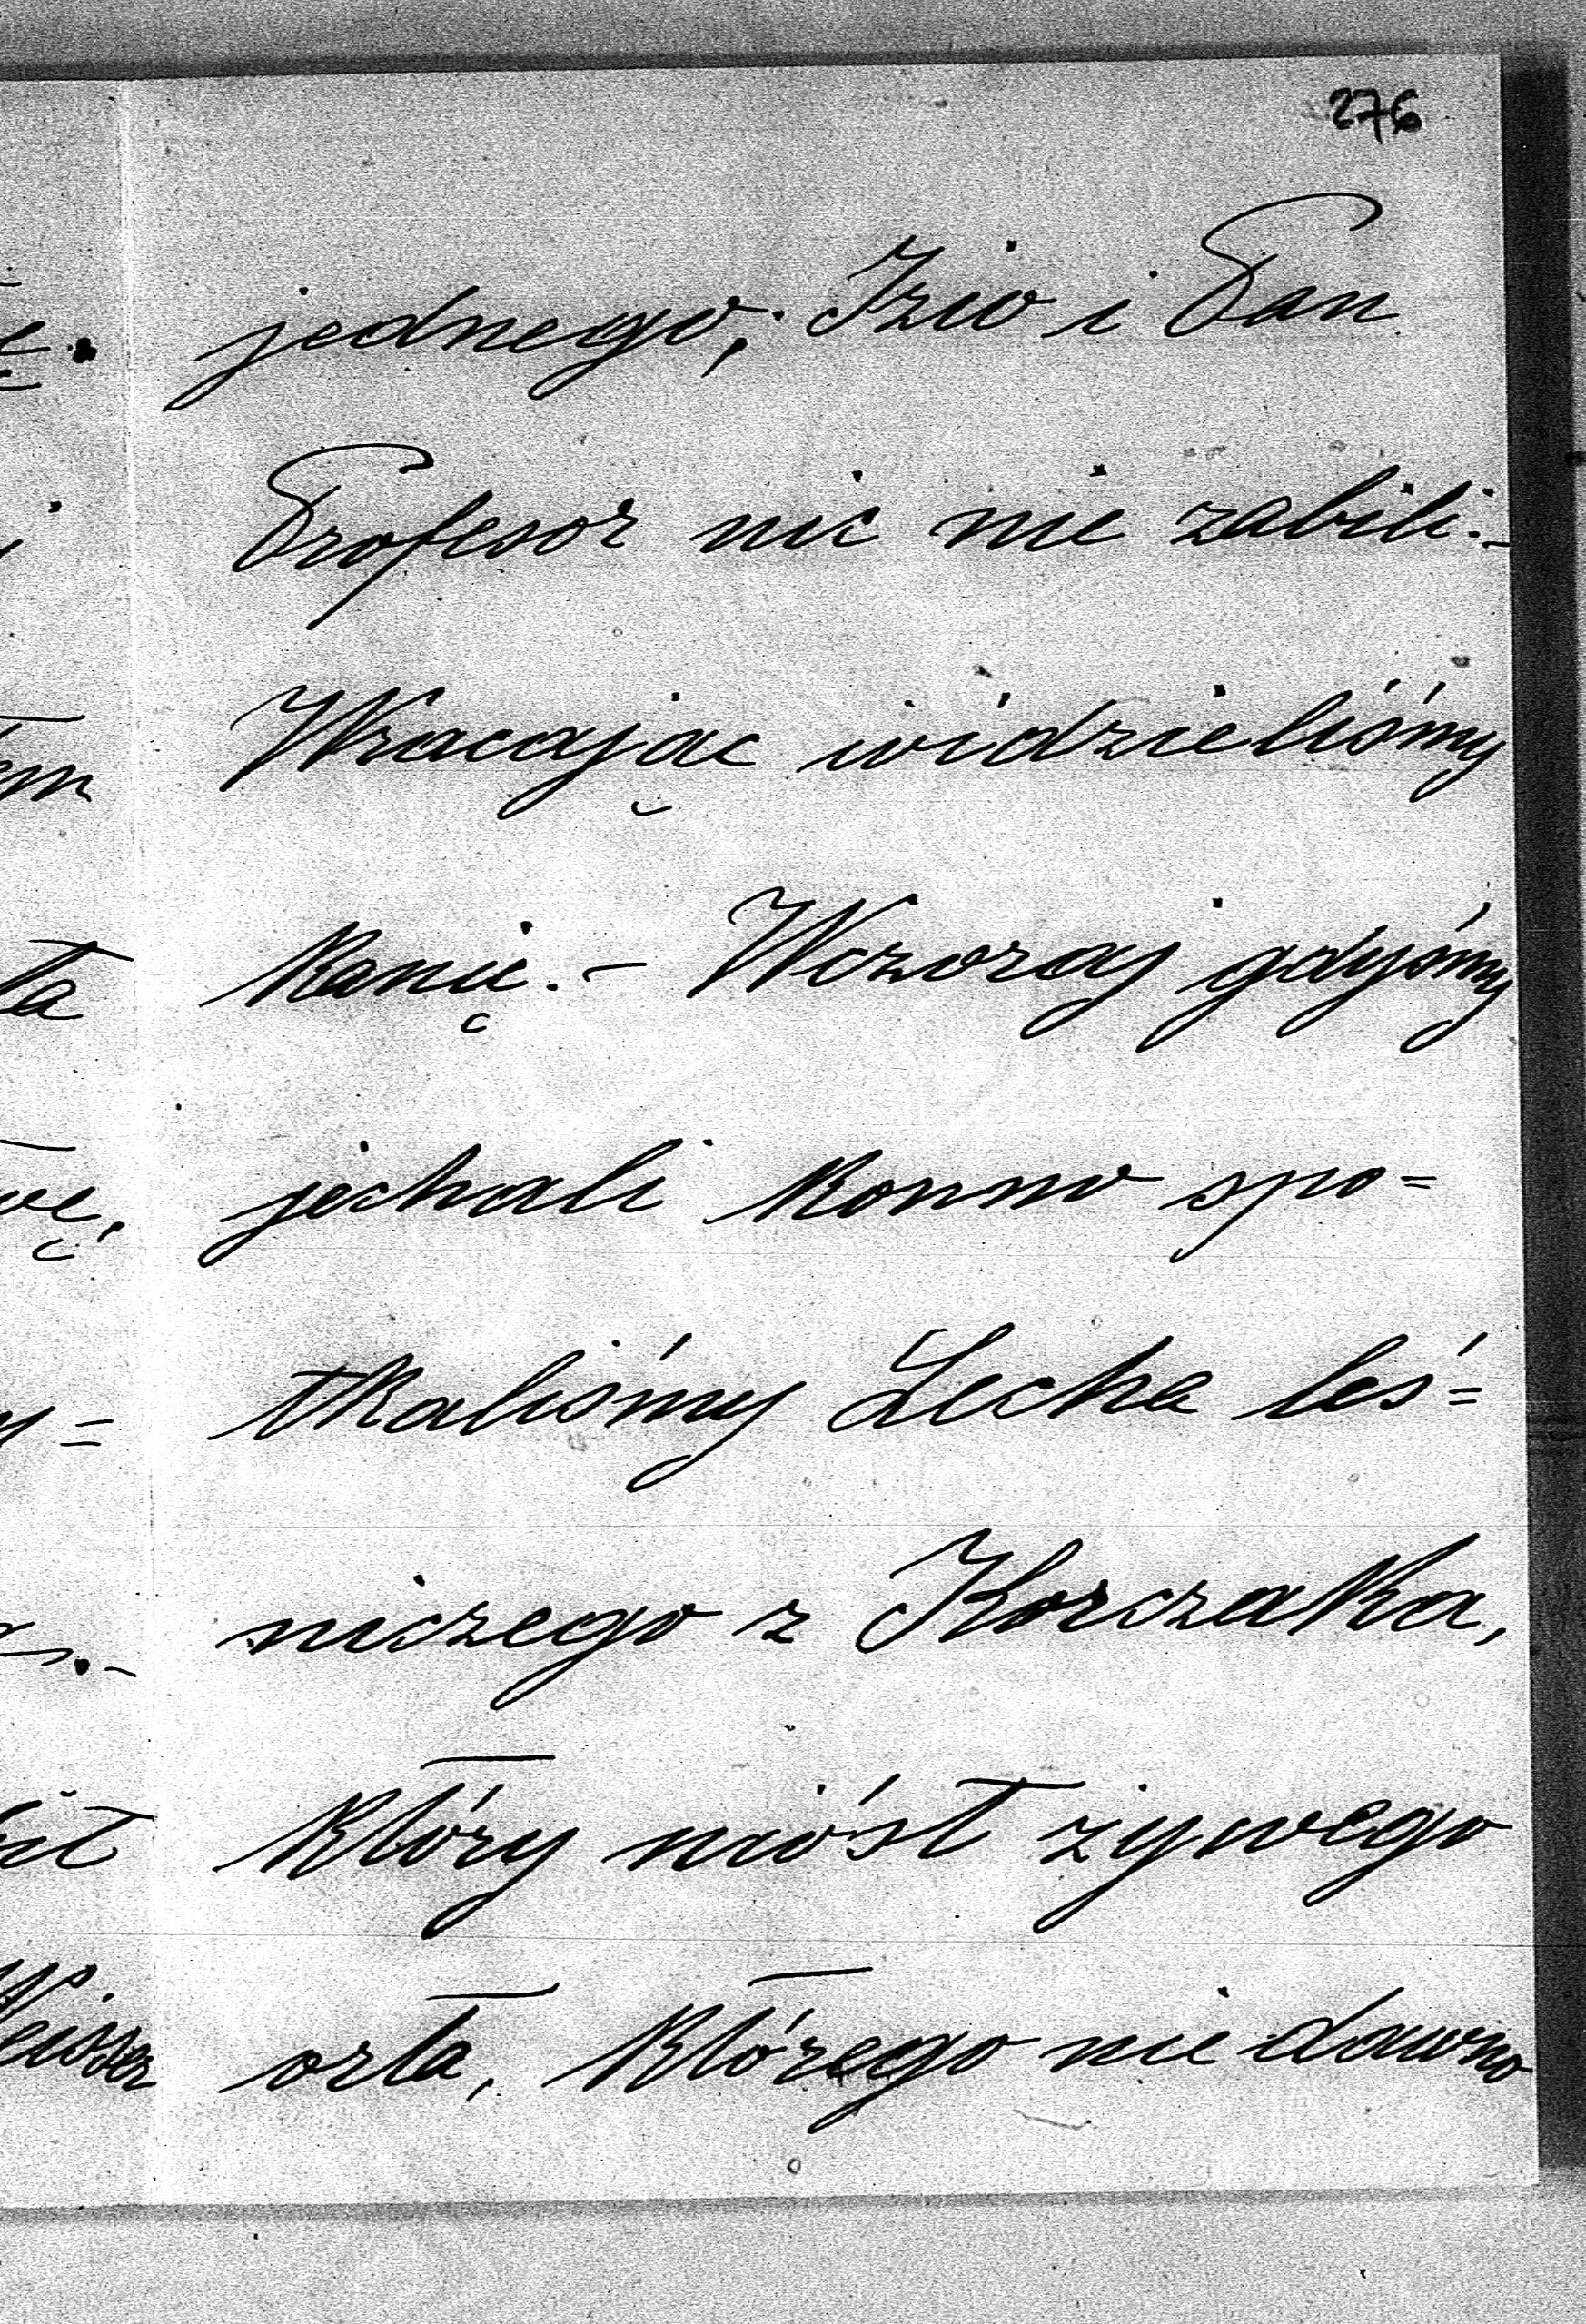 276
jednego, Izio i Pan
Profesor nic nie zabili. -
Wracając widzieliśmy
Kanię. - Wczoraj gdyśmy
jechali konno spo=
tkaliśmy Lecha leś=
niczego z Korczaka,
który niósł żywego
orła, którego nie dawno